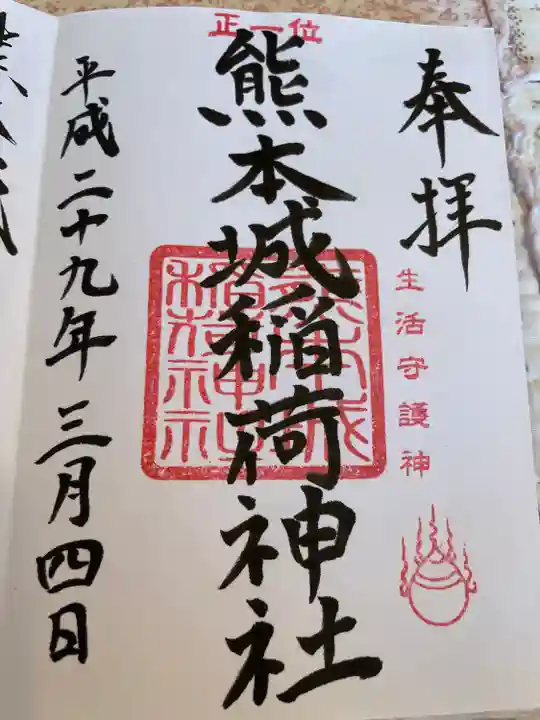 奉拝
生活守護神
正一位
熊本城稲荷神社
熊本城
稲荷神社
平成二十九年三月四日